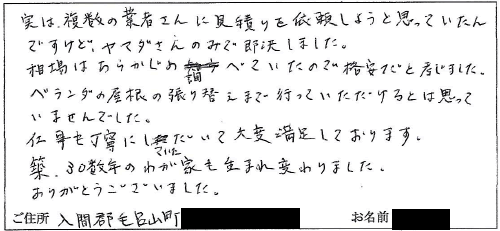 実は、複数の業者さんに見積りを依頼しようと思っていたん
ですけど、ヤマダさんのみで即決しました。
相場はあらかじめ調べていたので格安だと感じました。
ベランダの屋根の張り替えまで行っていただけるとは思って
いませんでした。
仕事も丁寧にしていただいて大変満足しております。
築、30数年のわが家も生まれ変わりました。
ありがとうございました。
ご住所 入間郡毛呂山町 お名前